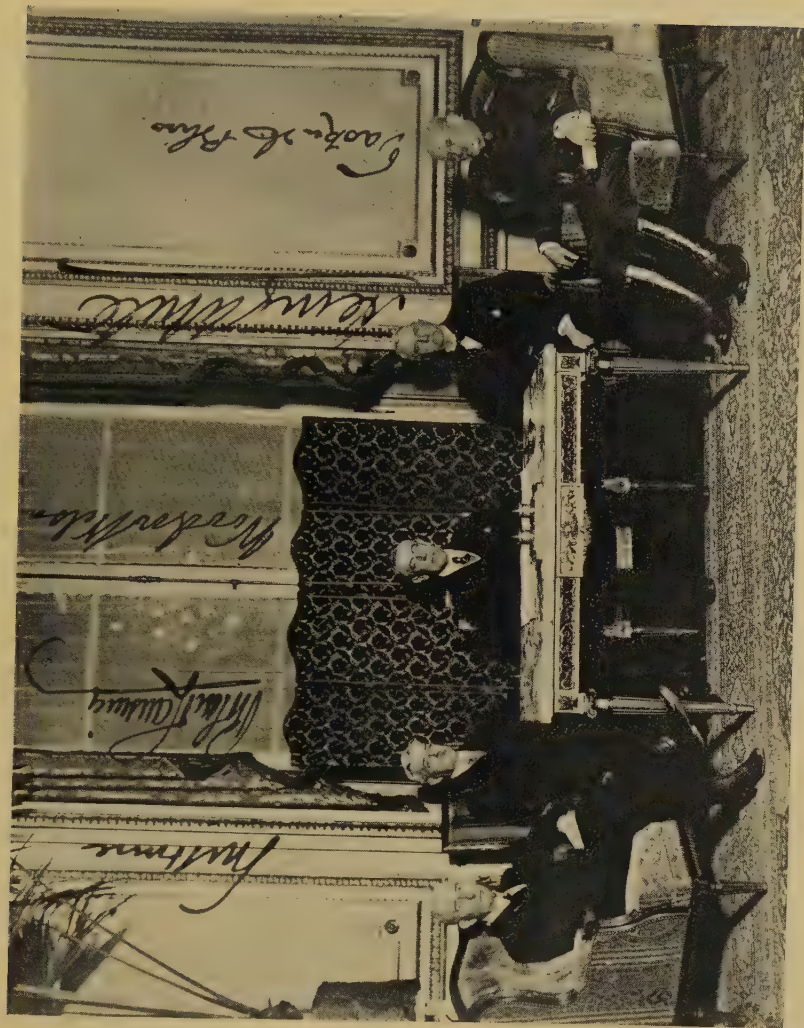 E M House
Robert Lansing
Woodrow Wilson
Henry White
Tasker H. Bliss